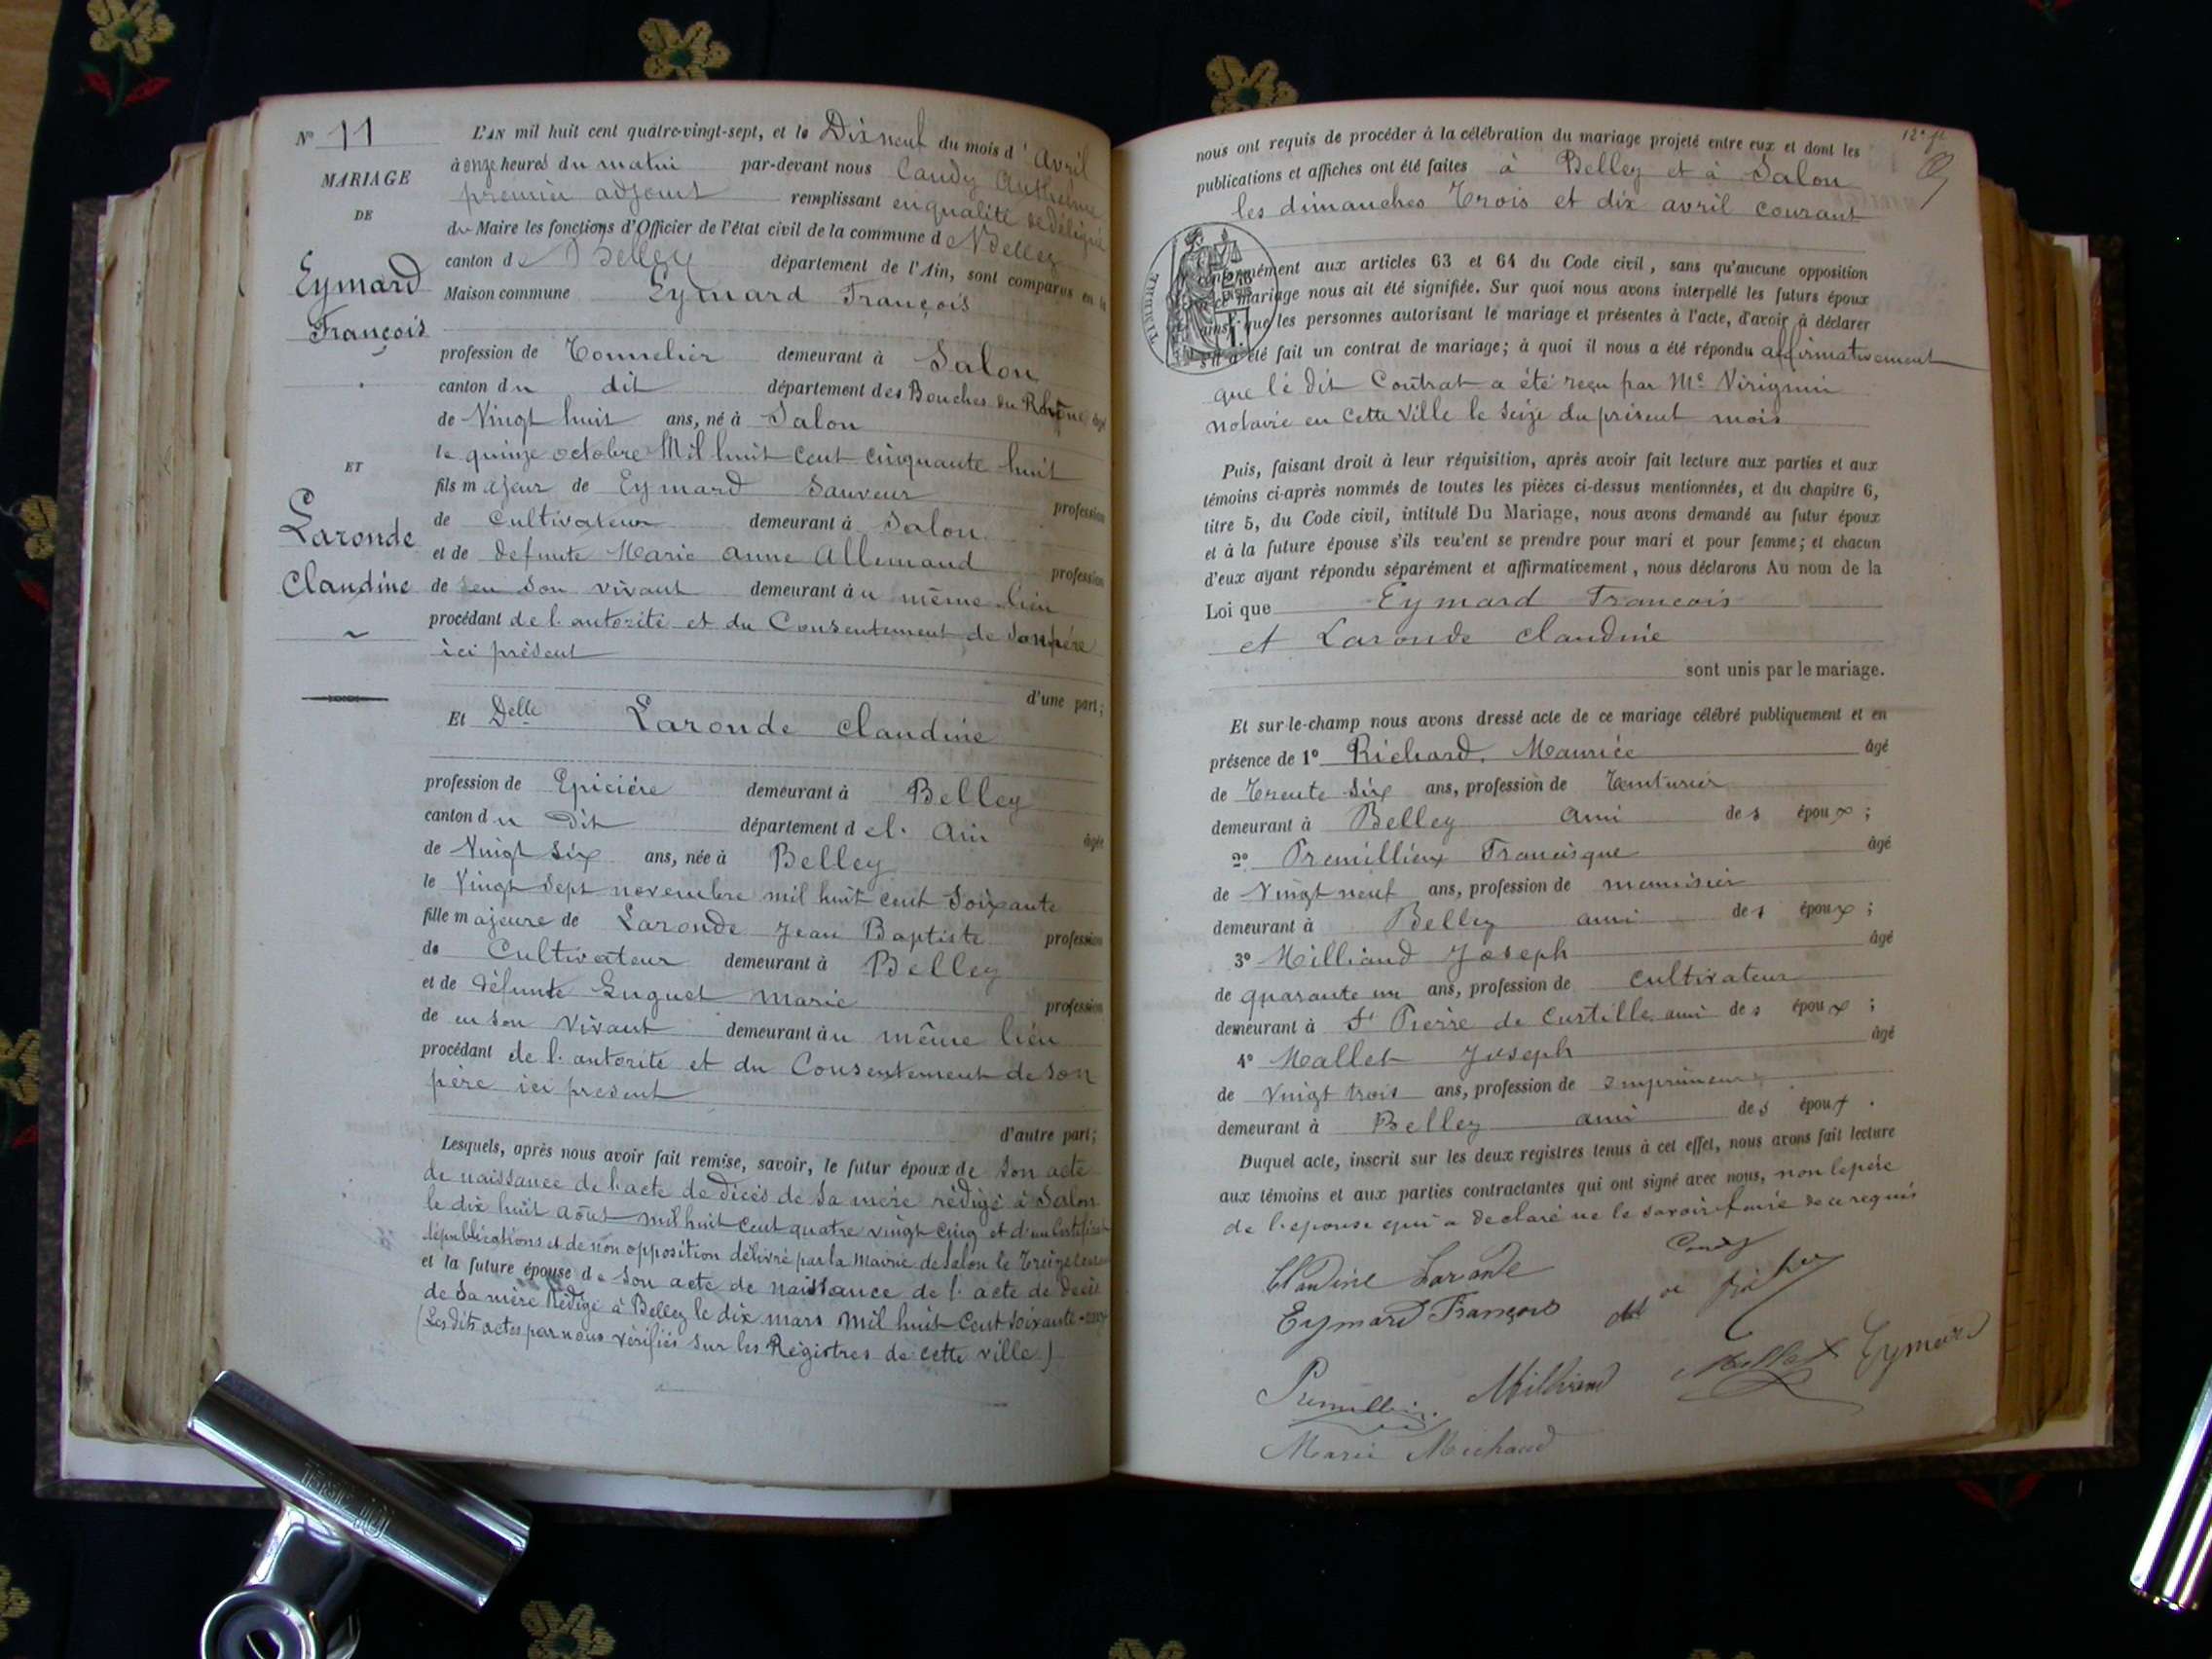 N° 11
MARIAGE
DE
Eymard
François
ET
Laronde
Claudine
L'AN mil huit cent quatre-vingt-sept, et le Dix neuf du mois d'Avril
à onze heures du matin par-devant nous Candy Anthelme
premier adjoint remplissant en qualité de délégué
du Maire les fonctions d'Officier de l'état civil de la commune de Belley
canton de Belley département de l'Ain, sont comparus en la
Maison commune Eymard François
profession de Tonnelier demeurant à Salon
canton du dit département des Bouches du Rhône âgé
de Vingt huit ans, né à Salon
le quinze octobre Mil huit cent cinquante huit
fils majeur de Eymard Sauveur profession
de Cultivateur demeurant à Salon
et de défunte Marie anne Allemand profession
de en son vivant demeurant au même lieu
procédant de l'autorité et du Consentement de son père
ici présent
d'une part;
Et Delle Laronde Claudine
profession de Epicière demeurant à Belley
canton du Dit département de l'Ain âgée
de Vingt Six ans, née à Belley
le Vingt sept novembre mil huit cent Soixante
fille majeure de Laronde Jean Baptiste profession
de Cultivateur demeurant à Belley
et de défunte Guguet Marie profession
de en son vivant demeurant au même lieu
procédant de l'autorité et du Consentement de son
père ici présent
d'autre part;
Lesquels, après nous avoir fait remise, savoir, le futur époux de son acte
de naissance de l'acte de décès de sa mère rédigé à Salon
le dix huit août mil huit cent quatre vingt cinq et d'un certificat
de publications et de non opposition délivré par la Mairie de Salon le Treize
et la future épouse de son acte de naissance de l'acte de décès
de sa mère Rédigé à Belley le dix mars mil huit cent soixante
(Les dits actes par nous vérifiés sur les Régistres de cette ville)
12e f
nous ont requis de procéder à la célébration du mariage projeté entre eux et dont les
publications et affiches ont été faites à Belley et à Salon
les dimanches Trois et dix avril courant
TIMBRE
conformément aux articles 63 et 64 du Code civil, sans qu'aucune opposition
à ce mariage nous ait été signifiée. Sur quoi nous avons interpellé les futurs époux
ainsi que les personnes autorisant le mariage et présentes à l'acte, d'avoir à déclarer
s'il a été fait un contrat de mariage; à quoi il nous a été répondu affirmativement
que le dit Contrat a été reçu par Me Virignin
notaire en cette Ville le seize du présent mois
Puis, faisant droit à leur réquisition, après avoir fait lecture aux parties et aux
témoins ci-après nommés de toutes les pièces ci-dessus mentionnées, et du chapitre 6,
titre 5, du Code civil, intitulé Du Mariage, nous avons demandé au futur époux
et à la future épouse s'ils veu'ent se prendre pour mari et pour femme; et chacun
d'eux ayant répondu séparément et affirmativement, nous déclarons Au nom de la
Loi que Eymard François
et Laronde Claudine
sont unis par le mariage.
Et sur-le-champ nous avons dressé acte de ce mariage célébré publiquement et en
présence de 1° Richard, Maurice âgé
de Trente Six ans, profession de Teinturier
demeurant à Belley ami des époux;
2° Premillieux Francisque âgé
de Vingt neuf ans, profession de menuisier
demeurant à Belley ami des époux;
3° Milliand Joseph âgé
de quarante un ans, profession de cultivateur
demeurant à St Pierre de Curtille ami des époux;
4° Mallet Joseph âgé
de Vingt trois ans, profession de imprimeur
demeurant à Belley ami des époux.
Duquel acte, inscrit sur les deux registres tenus à cet effet, nous avons fait lecture
aux témoins et aux parties contractantes qui ont signé avec nous, non le père
de l'épouse qui a déclaré ne le savoir faire de ce requis
Candy
Claudine Laronde
Eymard François
Premillieu Milliand Mallet Eymard
Marie Michaud